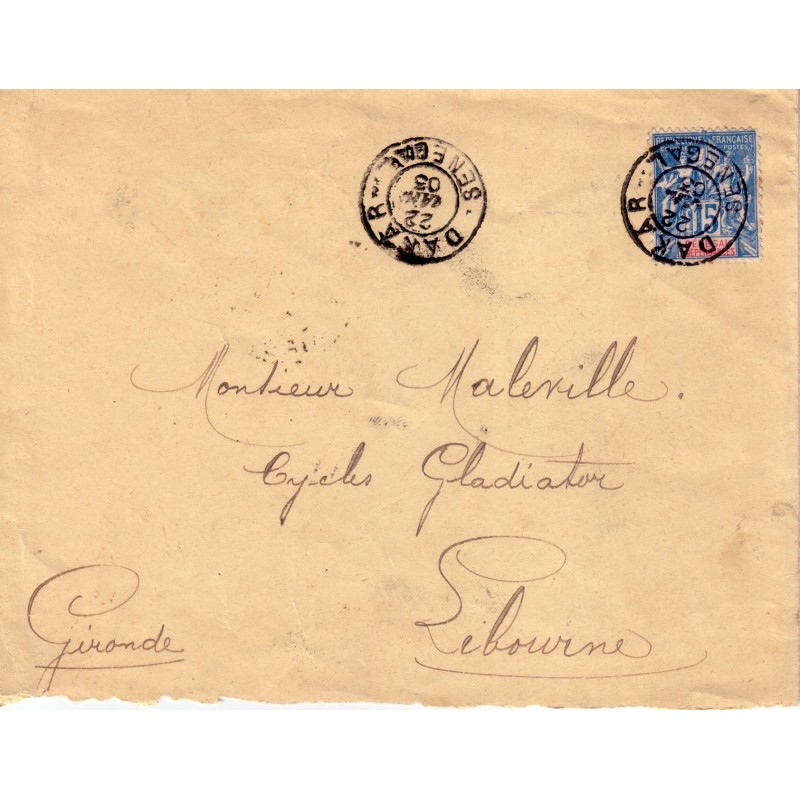 REPUBLIQUE FRANÇAISE
POSTES
15
DAKAR SENEGAL
22
JANV
03
DAKAR SENEGAL
22
03
Monsieur Maleville.
Cycles Gladiator
Libourne
Gironde